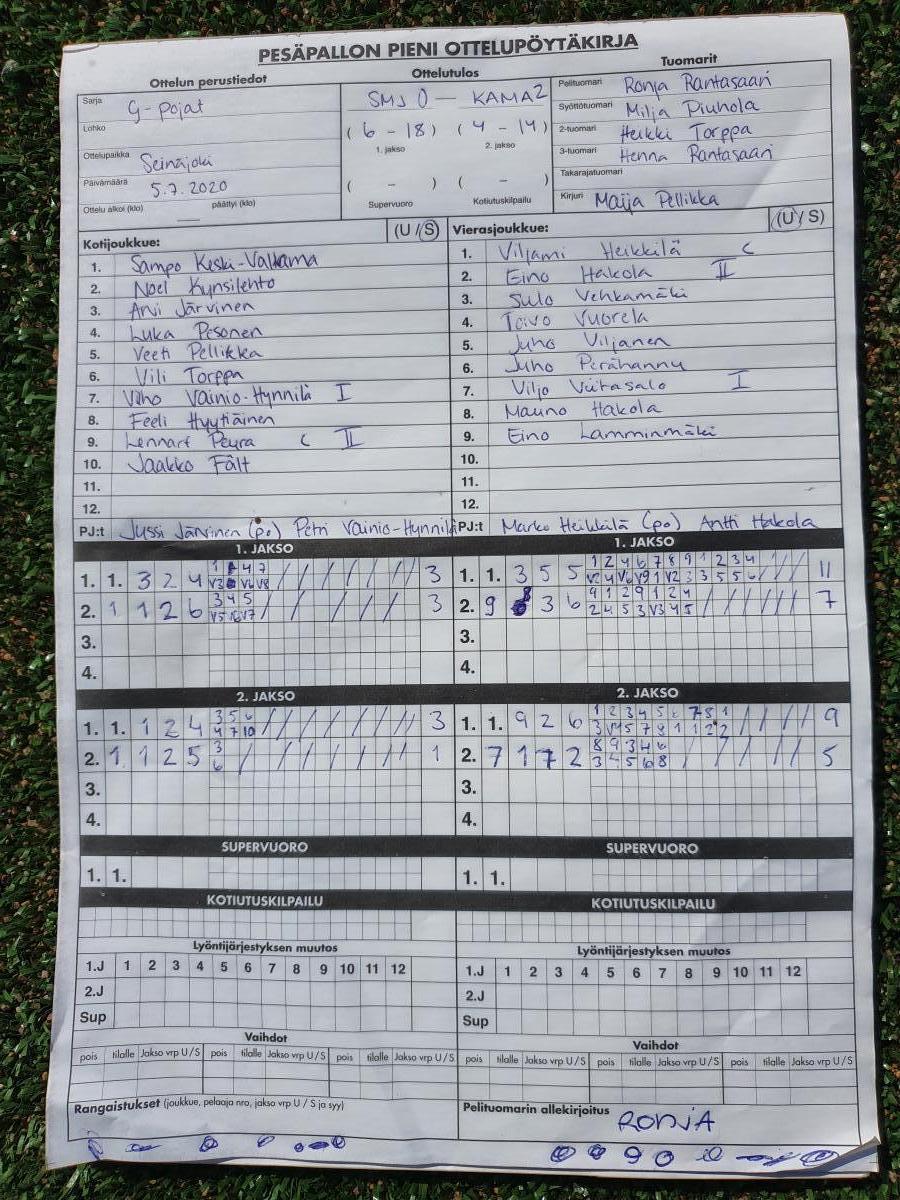 PESÄPALLON PIENI OTTELUPÖYTÄKIRJA
Ottelun perustiedot
Sarja G-pojat
Lohko
Ottelupaikka Seinäjoki
Päivämäärä 5.7.2020
Ottelu alkoi (klo) päättyi (klo)
Ottelutulos
SMJ 0 — KAMA 2
(6 - 18) (4 - 14)
1. jakso 2. jakso
( - ) ( - )
Supervuoro Kotiutuskilpailu
Tuomarit
Pelituomari Ronja Rantasaari
Syöttötuomari Milja Piuhola
2-tuomari Heikki Torppa
3-tuomari Henna Rantasaari
Takarajatuomari
Kirjuri Maija Pellikka
Kotijoukkue: (U / S)
1. Sampo Keski-Valkama
2. Noel Kynsilehto
3. Arvi Järvinen
4. Luka Pesonen
5. Veeti Pellikka
6. Vili Torppa
7. Väinö Vainio-Hynnilä I
8. Feeli Hyytiäinen
9. Lennart Peura C II
10. Jaakko Fält
11.
12.
PJ:t Jussi Järvinen (po) Petri Vainio-Hynnilä
Vierasjoukkue: (U / S)
1. Viljami Heikkilä C
2. Eino Hakola II
3. Sulo Vehkamäki
4. Toivo Vuorela
5. Juho Viljanen
6. Juho Perähannu
7. Viljo Viitasalo I
8. Mauno Hakola
9. Eino Lamminmäki
10.
11.
12.
PJ:t Marko Heikkilä (po) Antti Hakola
1. JAKSO
1. 1. 3 2 4 3
2. 1 1 2 6 3 4 5 3
3.
4.
1. JAKSO
1. 1. 3 5 5 1 2 4 6 7 8 9 1 2 3 4 11
2. 9 8 3 6 9 1 2 9 1 2 4 7
2 4 5 3 V3 4 5
3.
4.
2. JAKSO
1. 1. 1 2 4 3 5 6 3
4 7 10
2. 1 1 2 5 3 1
6
3.
4.
2. JAKSO
1. 1. 9 2 6 1 2 3 4 5 6 7 8 1 9
2. 7 1 7 2 8 9 3 4 6 5
3 4 5 6 8
3.
4.
SUPERVUORO
1. 1.
SUPERVUORO
1. 1.
KOTIUTUSKILPAILU
KOTIUTUSKILPAILU
Lyöntijärjestyksen muutos
1.J 1 2 3 4 5 6 7 8 9 10 11 12
2.J
Sup
Lyöntijärjestyksen muutos
1.J 1 2 3 4 5 6 7 8 9 10 11 12
2.J
Sup
Vaihdot
pois tilalle Jakso vrp U / S pois tilalle Jakso vrp U / S pois tilalle Jakso vrp U / S
Vaihdot
pois tilalle Jakso vrp U / S pois tilalle Jakso vrp U / S pois tilalle Jakso vrp U / S
Rangaistukset (joukkue, pelaaja nro, jakso vrp U / S ja syy)
Pelituomarin allekirjoitus
RONJA